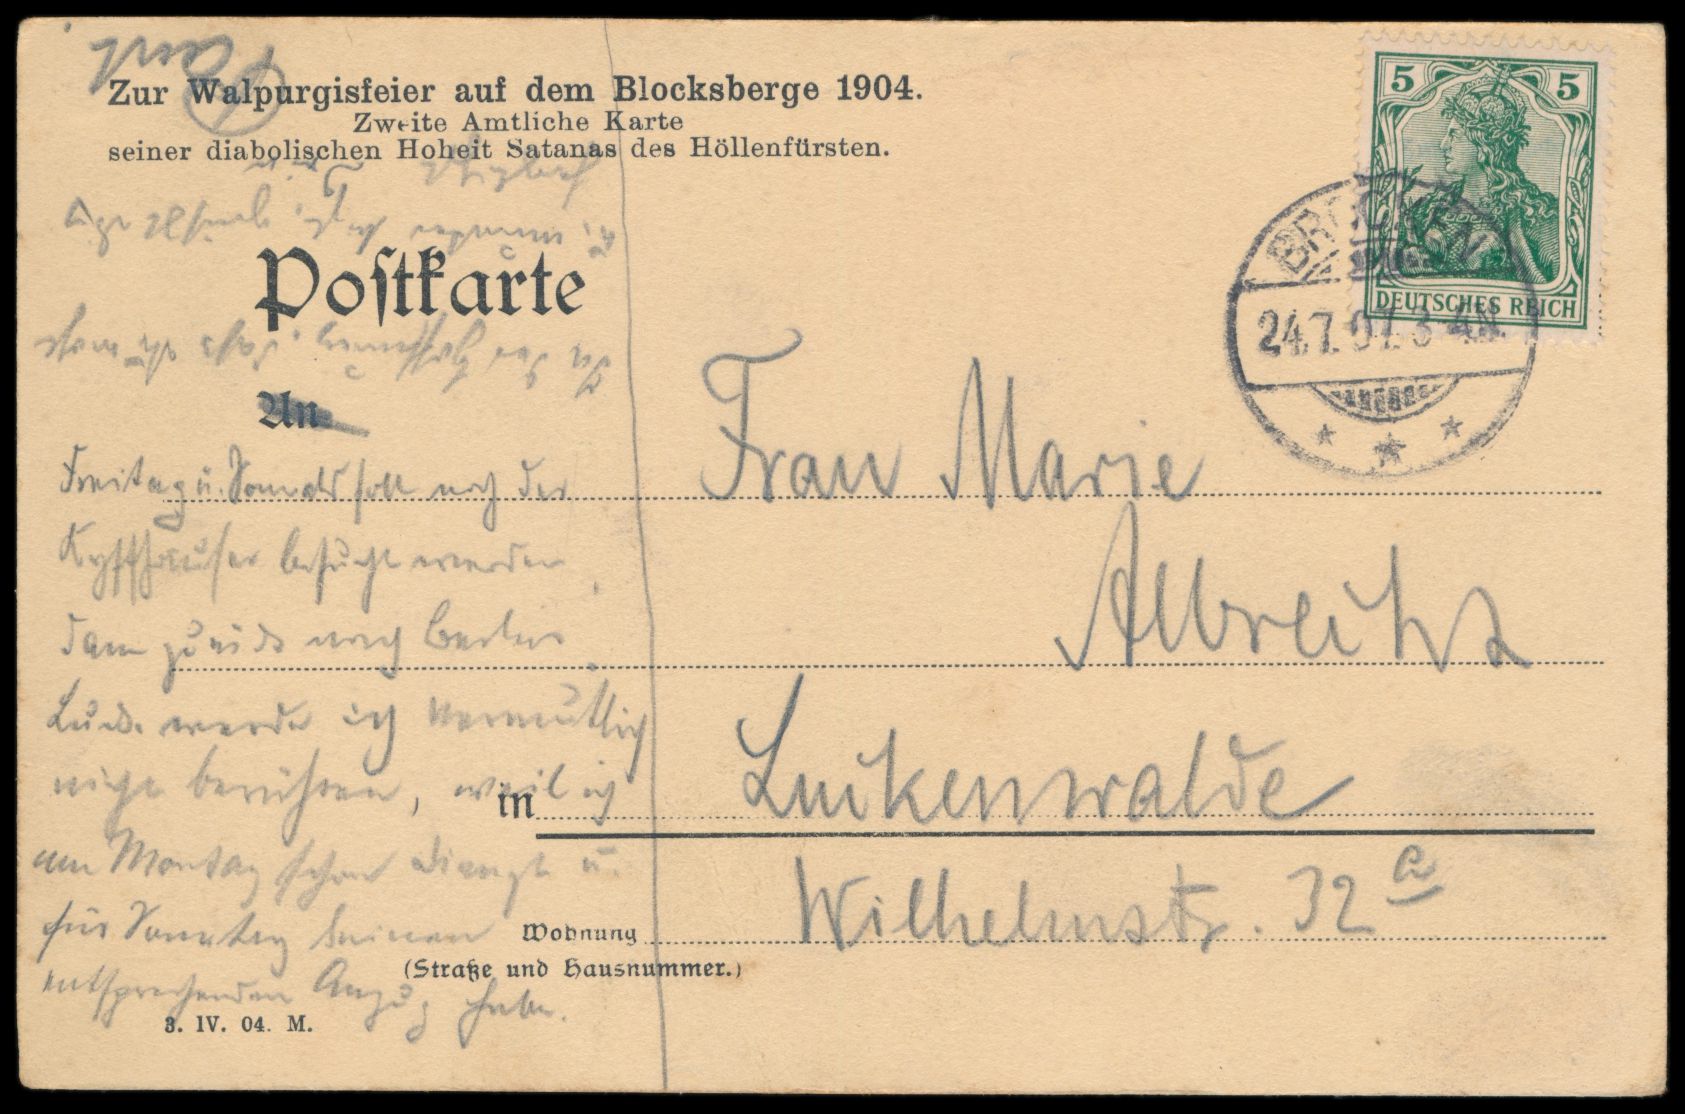 Zur Walpurgisfeier auf dem Blocksberge 1904.
Zweite Amtliche Karte
seiner diabolischen Hoheit Satanas des Höllenfürsten.
5 5
DEUTSCHES REICH
BROCKEN
24.7.07. 3-4N.
Postkarte
An
Frau Marie
Albrecht
in Luckenwalde
Wilhelmstr. 32 a
Wohnung
(Straße und Hausnummer.)
3. IV. 04. M.
Freitag u. Sonnabd soll noch der
Kyffhäuser besucht werden,
dann zurück nach Berlin.
Lucke werde ich vermutlich
nicht berühren, weil ich
am Montag schon Dienst u.
für Sonntag keinen
entsprechenden Anzug habe.
In der Hoffnung, dass
Paul.